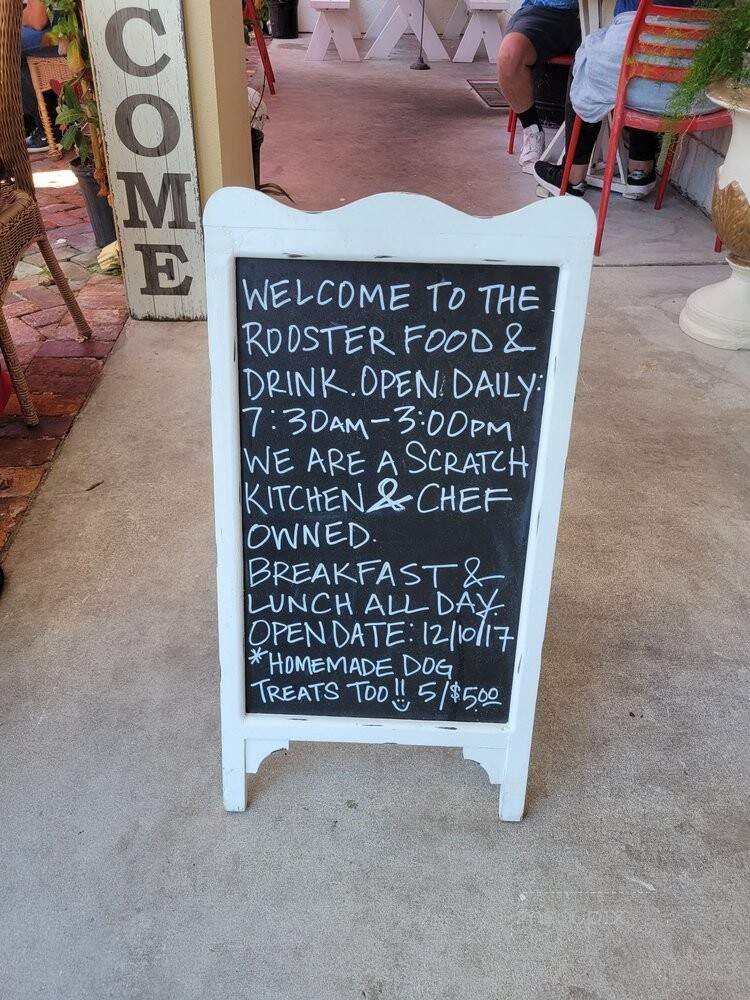 COME
WELCOME TO THE
ROOSTER FOOD &
DRINK. OPEN DAILY:
7:30AM-3:00PM
WE ARE A SCRATCH
KITCHEN & CHEF
OWNED.
BREAKFAST &
LUNCH ALL DAY.
OPEN DATE: 12/10/17
*HOMEMADE DOG
TREATS TOO!! 5/$5.00